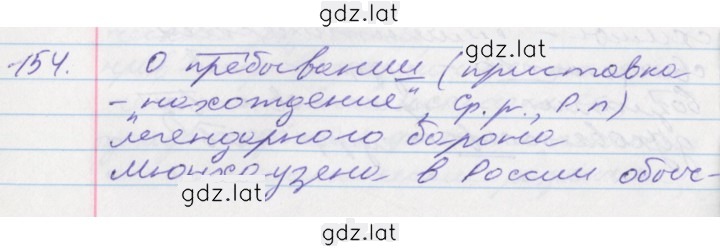 gdz.lat
154. О пребывании (приставка
- „нахождение", ср.р., Р.п)
легендарного барона
Мюнхаузена в России обыч-
gdz.lat
gdz.lat